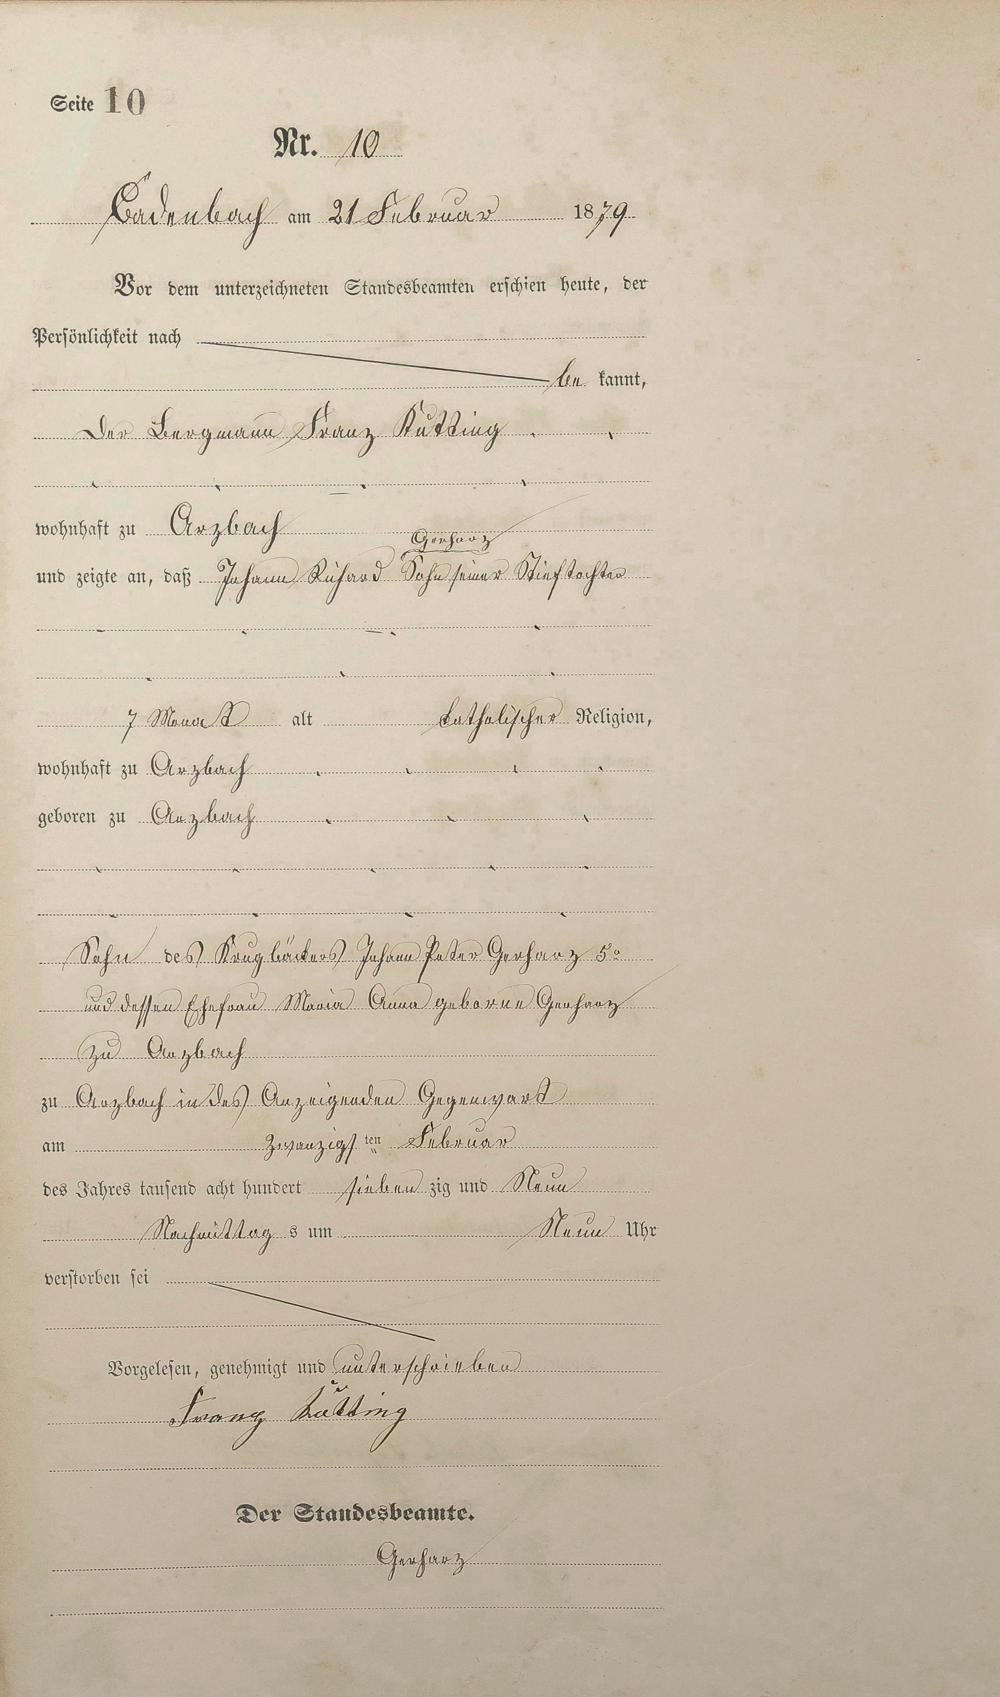 Seite 10
Nr. 10
Cadenbach am 21 Februar 1879.
Vor dem unterzeichneten Standesbeamten erschien heute, der
Persönlichkeit nach
be kannt,
Der Bergmann Franz Kütting
wohnhaft zu Arzbach
Gerharz
und zeigte an, daß Johann Richard Sohn seiner Stieftochter
7 Monat alt katholischer Religion,
wohnhaft zu Arzbach
geboren zu Arzbach
Sohn des Krugbäckers Johann Peter Gerharz 5º
und dessen Ehefrau Maria Anna geborne Gerharz
zu Arzbach
zu Arzbach in des Anzeigenden Gegenwart
am Zwanzigsten Februar
des Jahres tausend acht hundert sieben zig und Neun
Nachmittag s um Neun Uhr
verstorben sei
Vorgelesen, genehmigt und unterschrieben
Franz Kütting
Der Standesbeamte.
Gerharz